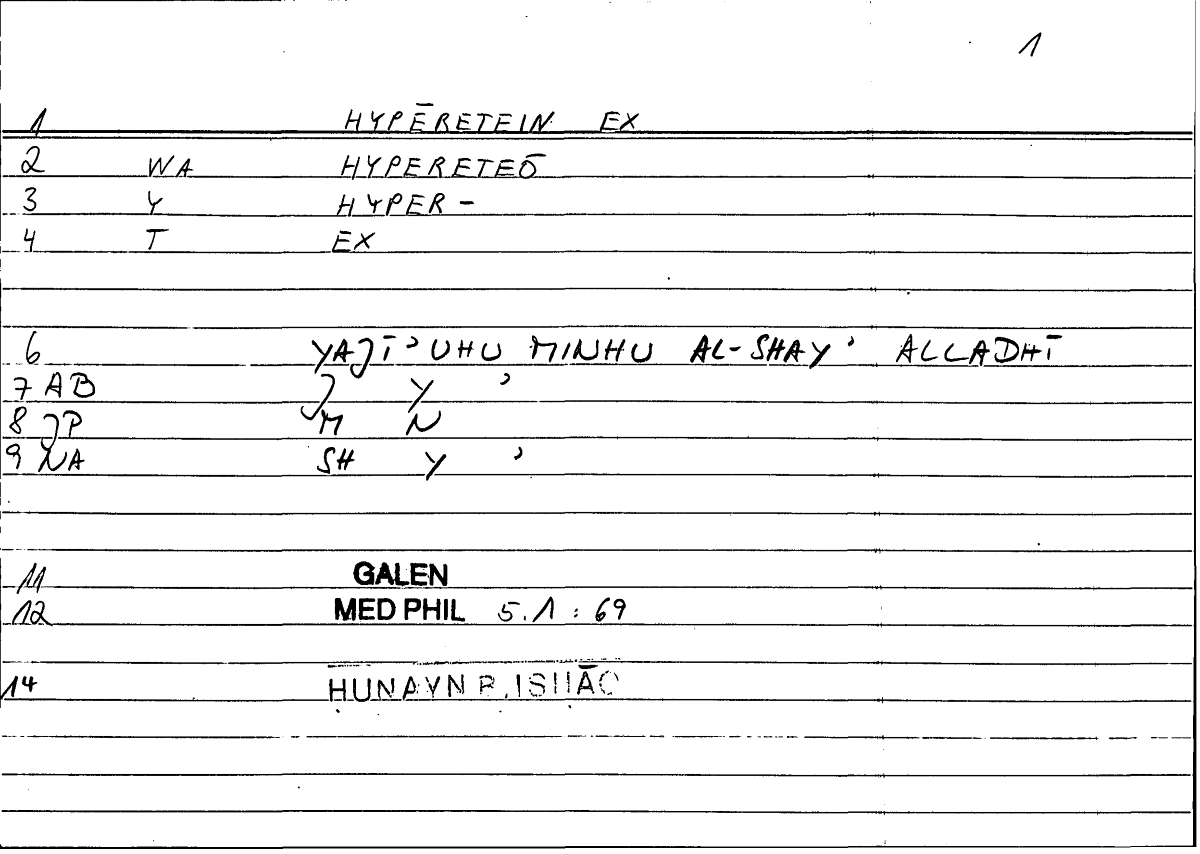 1
1 HYPĒRETEIN EX
2 WA HYPERETEŌ
3 Y HYPER -
4 T EX
6 YAJĪʾUHU MINHU AL-SHAYʾ ALLADHĪ
7 AB J Y ʾ
8 JP M N
9 NA SH Y ʾ
11 GALEN
12 MED PHIL 5.1 : 69
14 ḤUNAYN B. ISḤĀQ